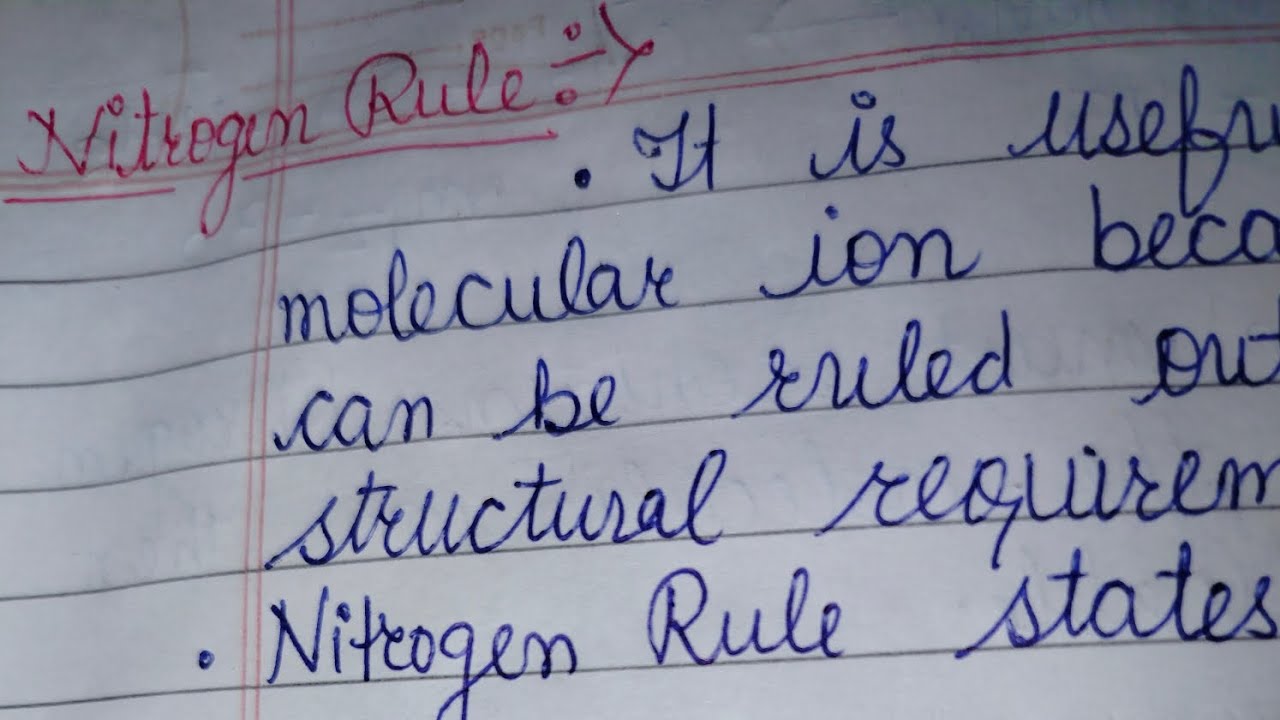 Nitrogen Rule :->
. It is usefu
molecular ion beca
can be ruled out
structural requirem
. Nitrogen Rule states